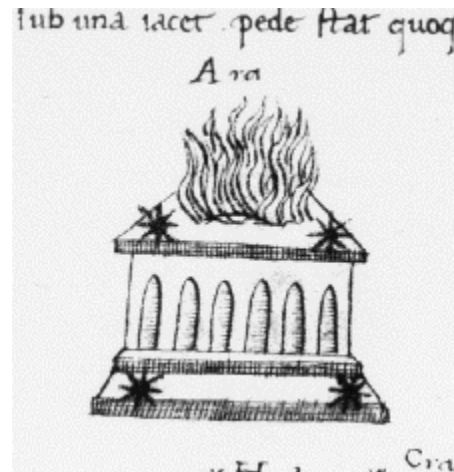 sub una iacet pede stat quoq
Ara
Cra